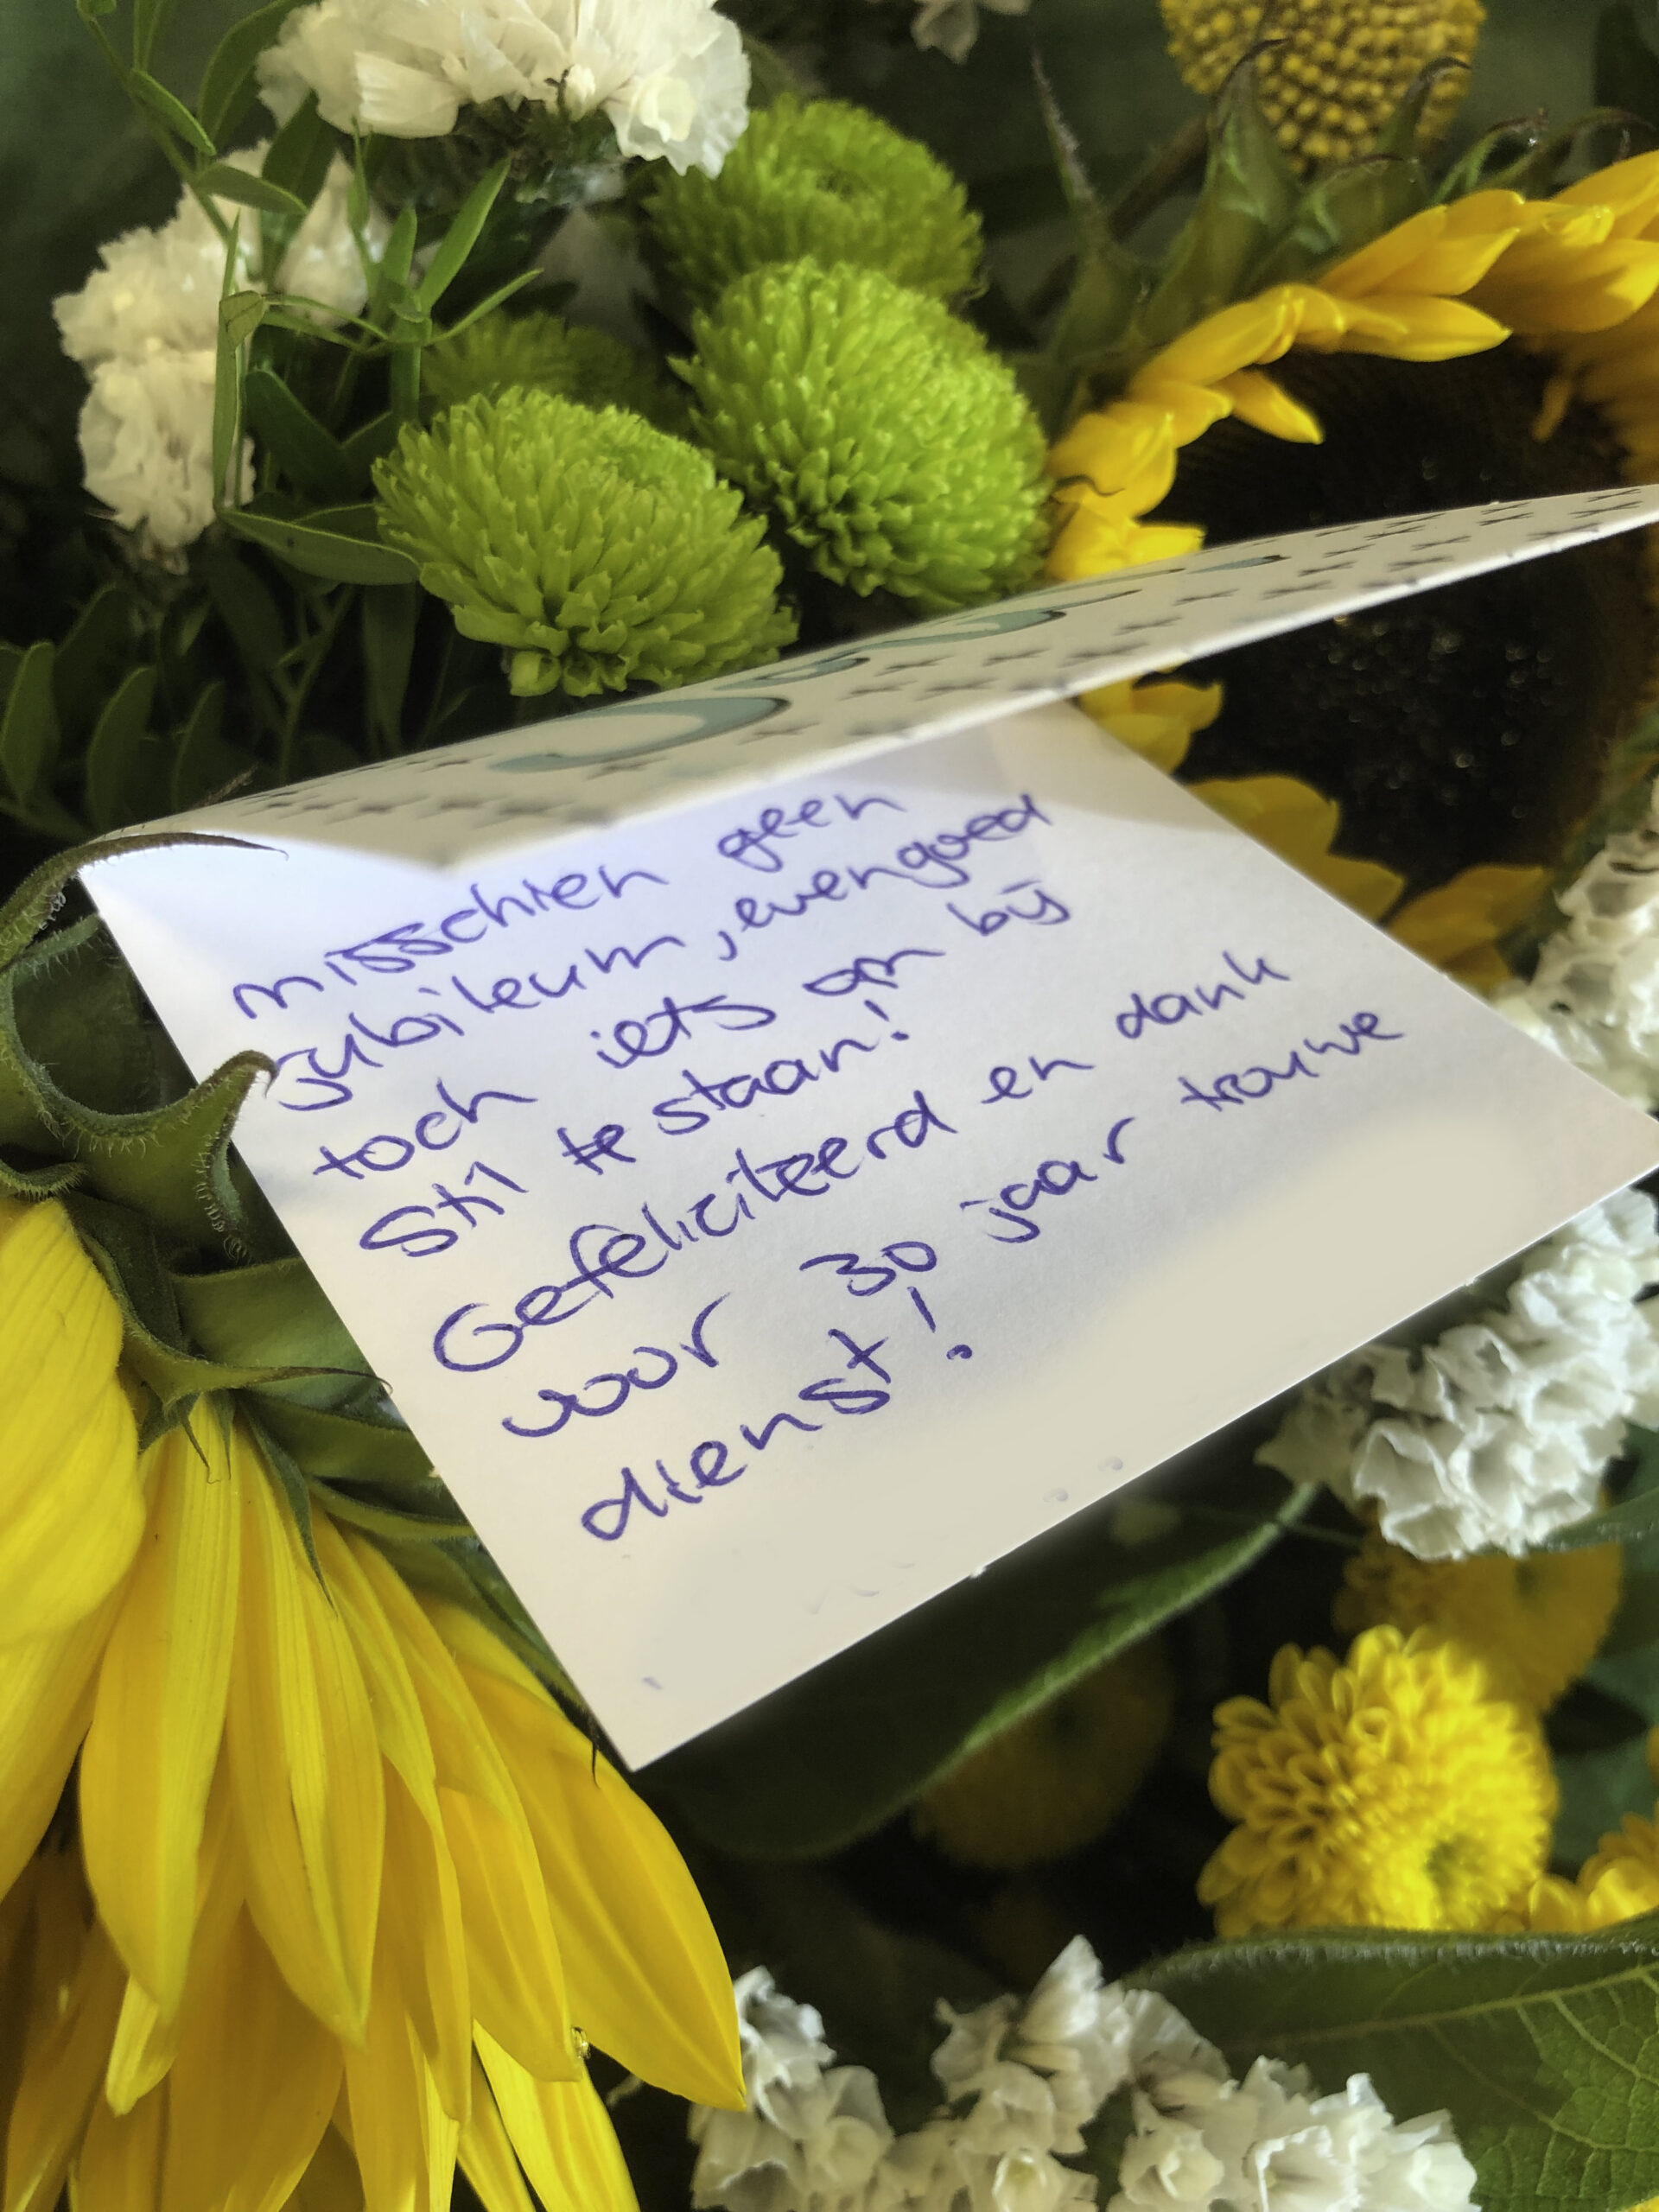 misschien geen
Jubileum, evengoed
toch iets om bij
Stil te staan!
Gefeliciteerd en dank
voor 30 jaar trouwe
dienst!